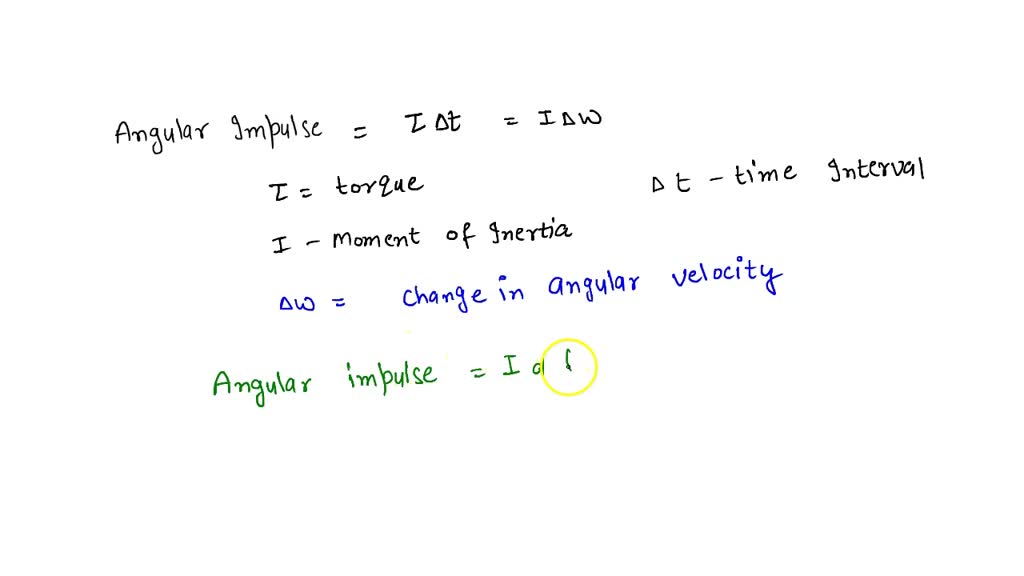 Angular Impulse = τ Δt = I Δω
τ = torque Δt - time Interval
I - Moment of Inertia
Δω = change in angular velocity
Angular impulse = I α (